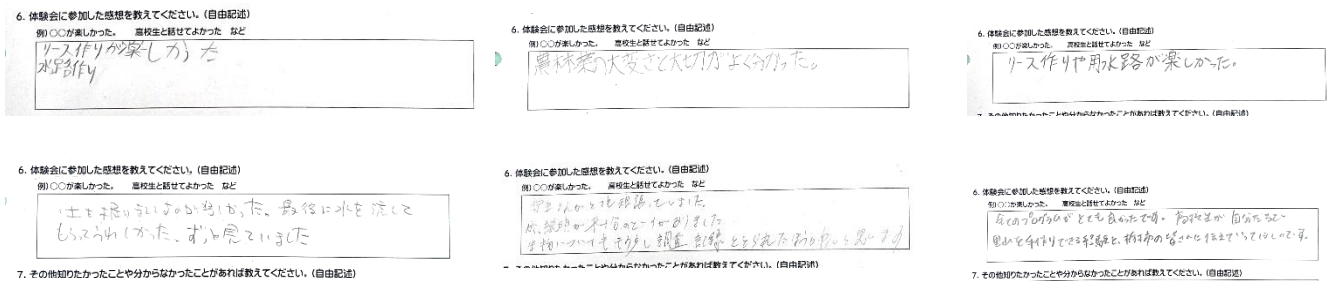 6. 体験会に参加した感想を教えてください。(自由記述)
例)○○が楽しかった。 高校生と話せてよかった など
リース作りが楽しかった
水路作り
6. 体験会に参加した感想を教えてください。(自由記述)
例)○○が楽しかった。 高校生と話せてよかった など
農林業の大変さと大切がよく分かった。
6. 体験会に参加した感想を教えてください。(自由記述)
例)○○が楽しかった。 高校生と話せてよかった など
リース作りや用水路が楽しかった。
7. その他知りたかったことや分からなかったことがあれば教えてください。(自由記述)
6. 体験会に参加した感想を教えてください。(自由記述)
例)○○が楽しかった。 高校生と話せてよかった など
土を掘り なのが楽しかった。最後に水を流して
もらってうれしかった。ずっと見ていました
7. その他知りたかったことや分からなかったことがあれば教えてください。(自由記述)
6. 体験会に参加した感想を教えてください。(自由記述)
例)○○が楽しかった。 高校生と話せてよかった など
とても頑張っていました。
がありました
もう少し調査、記録 とられたほうが と思います
7. その他知りたかったことや分からなかったことがあれば教えてください。(自由記述)
6. 体験会に参加した感想を教えてください。(自由記述)
例)○○が楽しかった。 高校生と話せてよかった など
全てのプログラムがとても良かったです。高校生が自分たちで
里山を手作りできる経験を、 市の皆さんに伝えていってほしいです。
7. その他知りたかったことや分からなかったことがあれば教えてください。(自由記述)